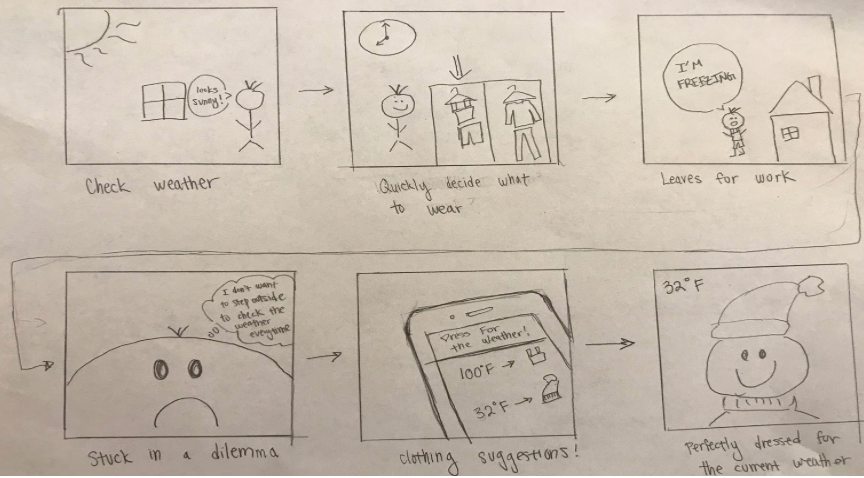 looks
sunny!
Check weather
Quickly decide what
to wear
I'M
FREEZING!
Leaves for work
I don't want
to step outside
to check the
weather
everytime
Stuck in a dilemma
Dress for
the weather!
100°F →
32°F →
clothing suggestions!
32°F
Perfectly dressed for
the current weather